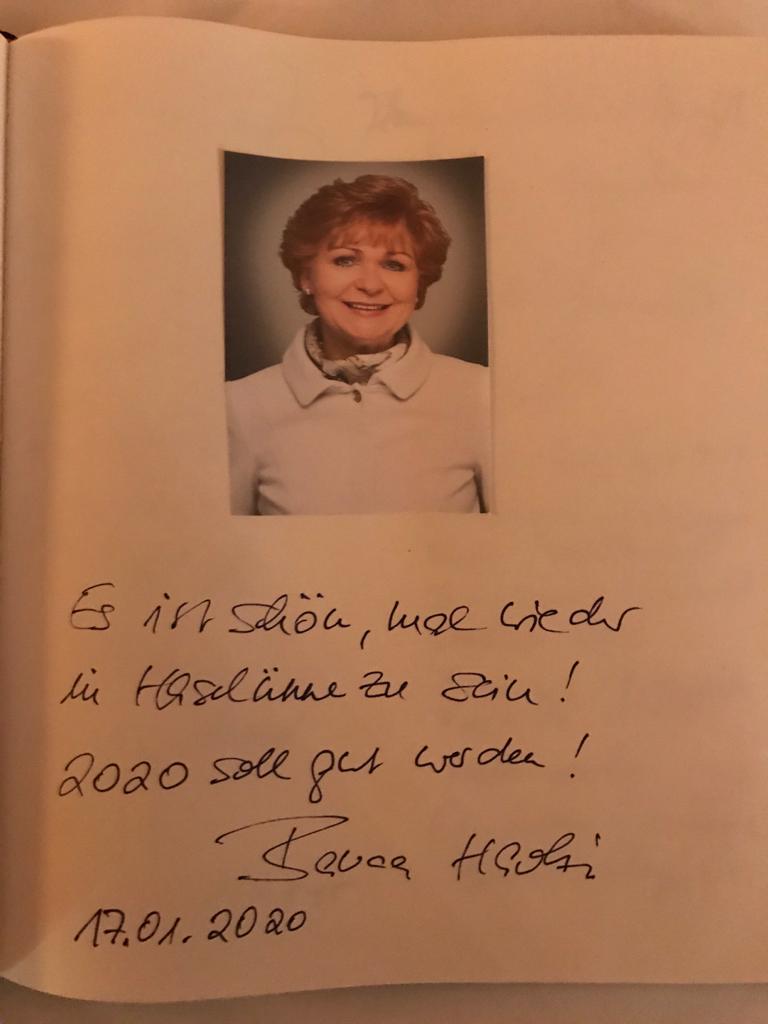 Es ist schön, mal wieder
in Haselünne zu sein!
2020 soll gut werden!
17.01.2020